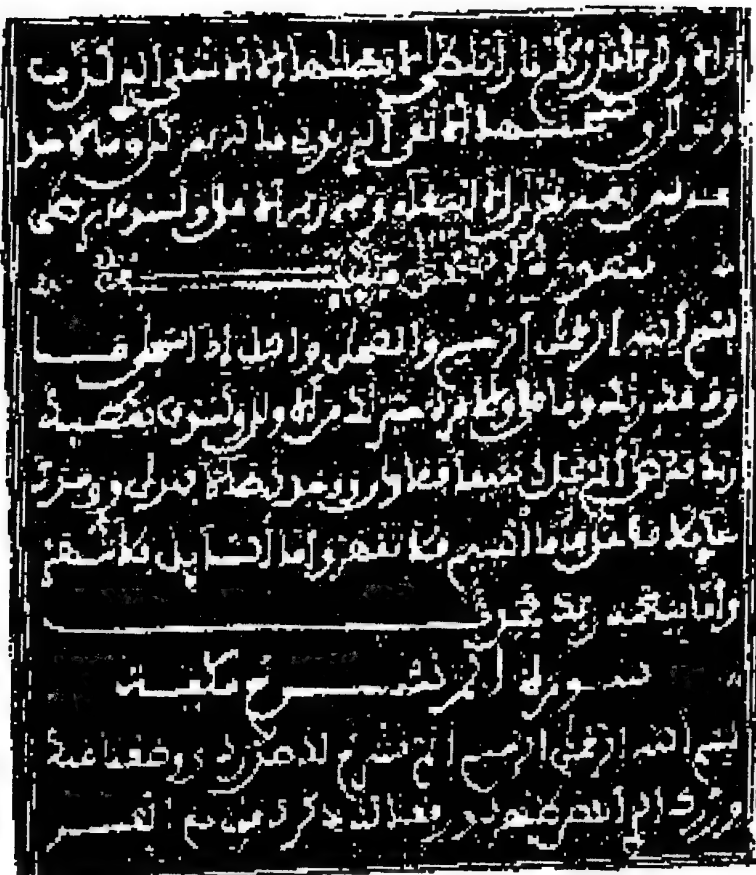 والاولى فانذرتكم نارا تلظى لا يصلىها الا الاشقى الذي كذب
وتولى وسيجنبها الاتقى الذي يوتي ماله يتزكى وما لاحد
عنده من نعمة تجزى الا ابتغاء وجه ربه الاعلى ولسوف يرضى
سورة والضحى مكية
بسم الله الرحمن الرحيم والضحى واليل اذا سجى ما
ودعك ربك وما قلى وللاخرة خير لك من الاولى ولسوف يعطيك
ربك فترضى الم يجدك يتيما فاوى ووجدك ضالا فهدى ووجدك
عايلا فاغنى فاما اليتيم فلا تقهر واما السايل فلا تنهر
واما بنعمة ربك فحدث
سورة الم نشرح مكية
بسم الله الرحمن الرحيم الم نشرح لك صدرك ووضعنا عنك
وزرك الذي انقض ظهرك ورفعنا لك ذكرك فان مع العسر